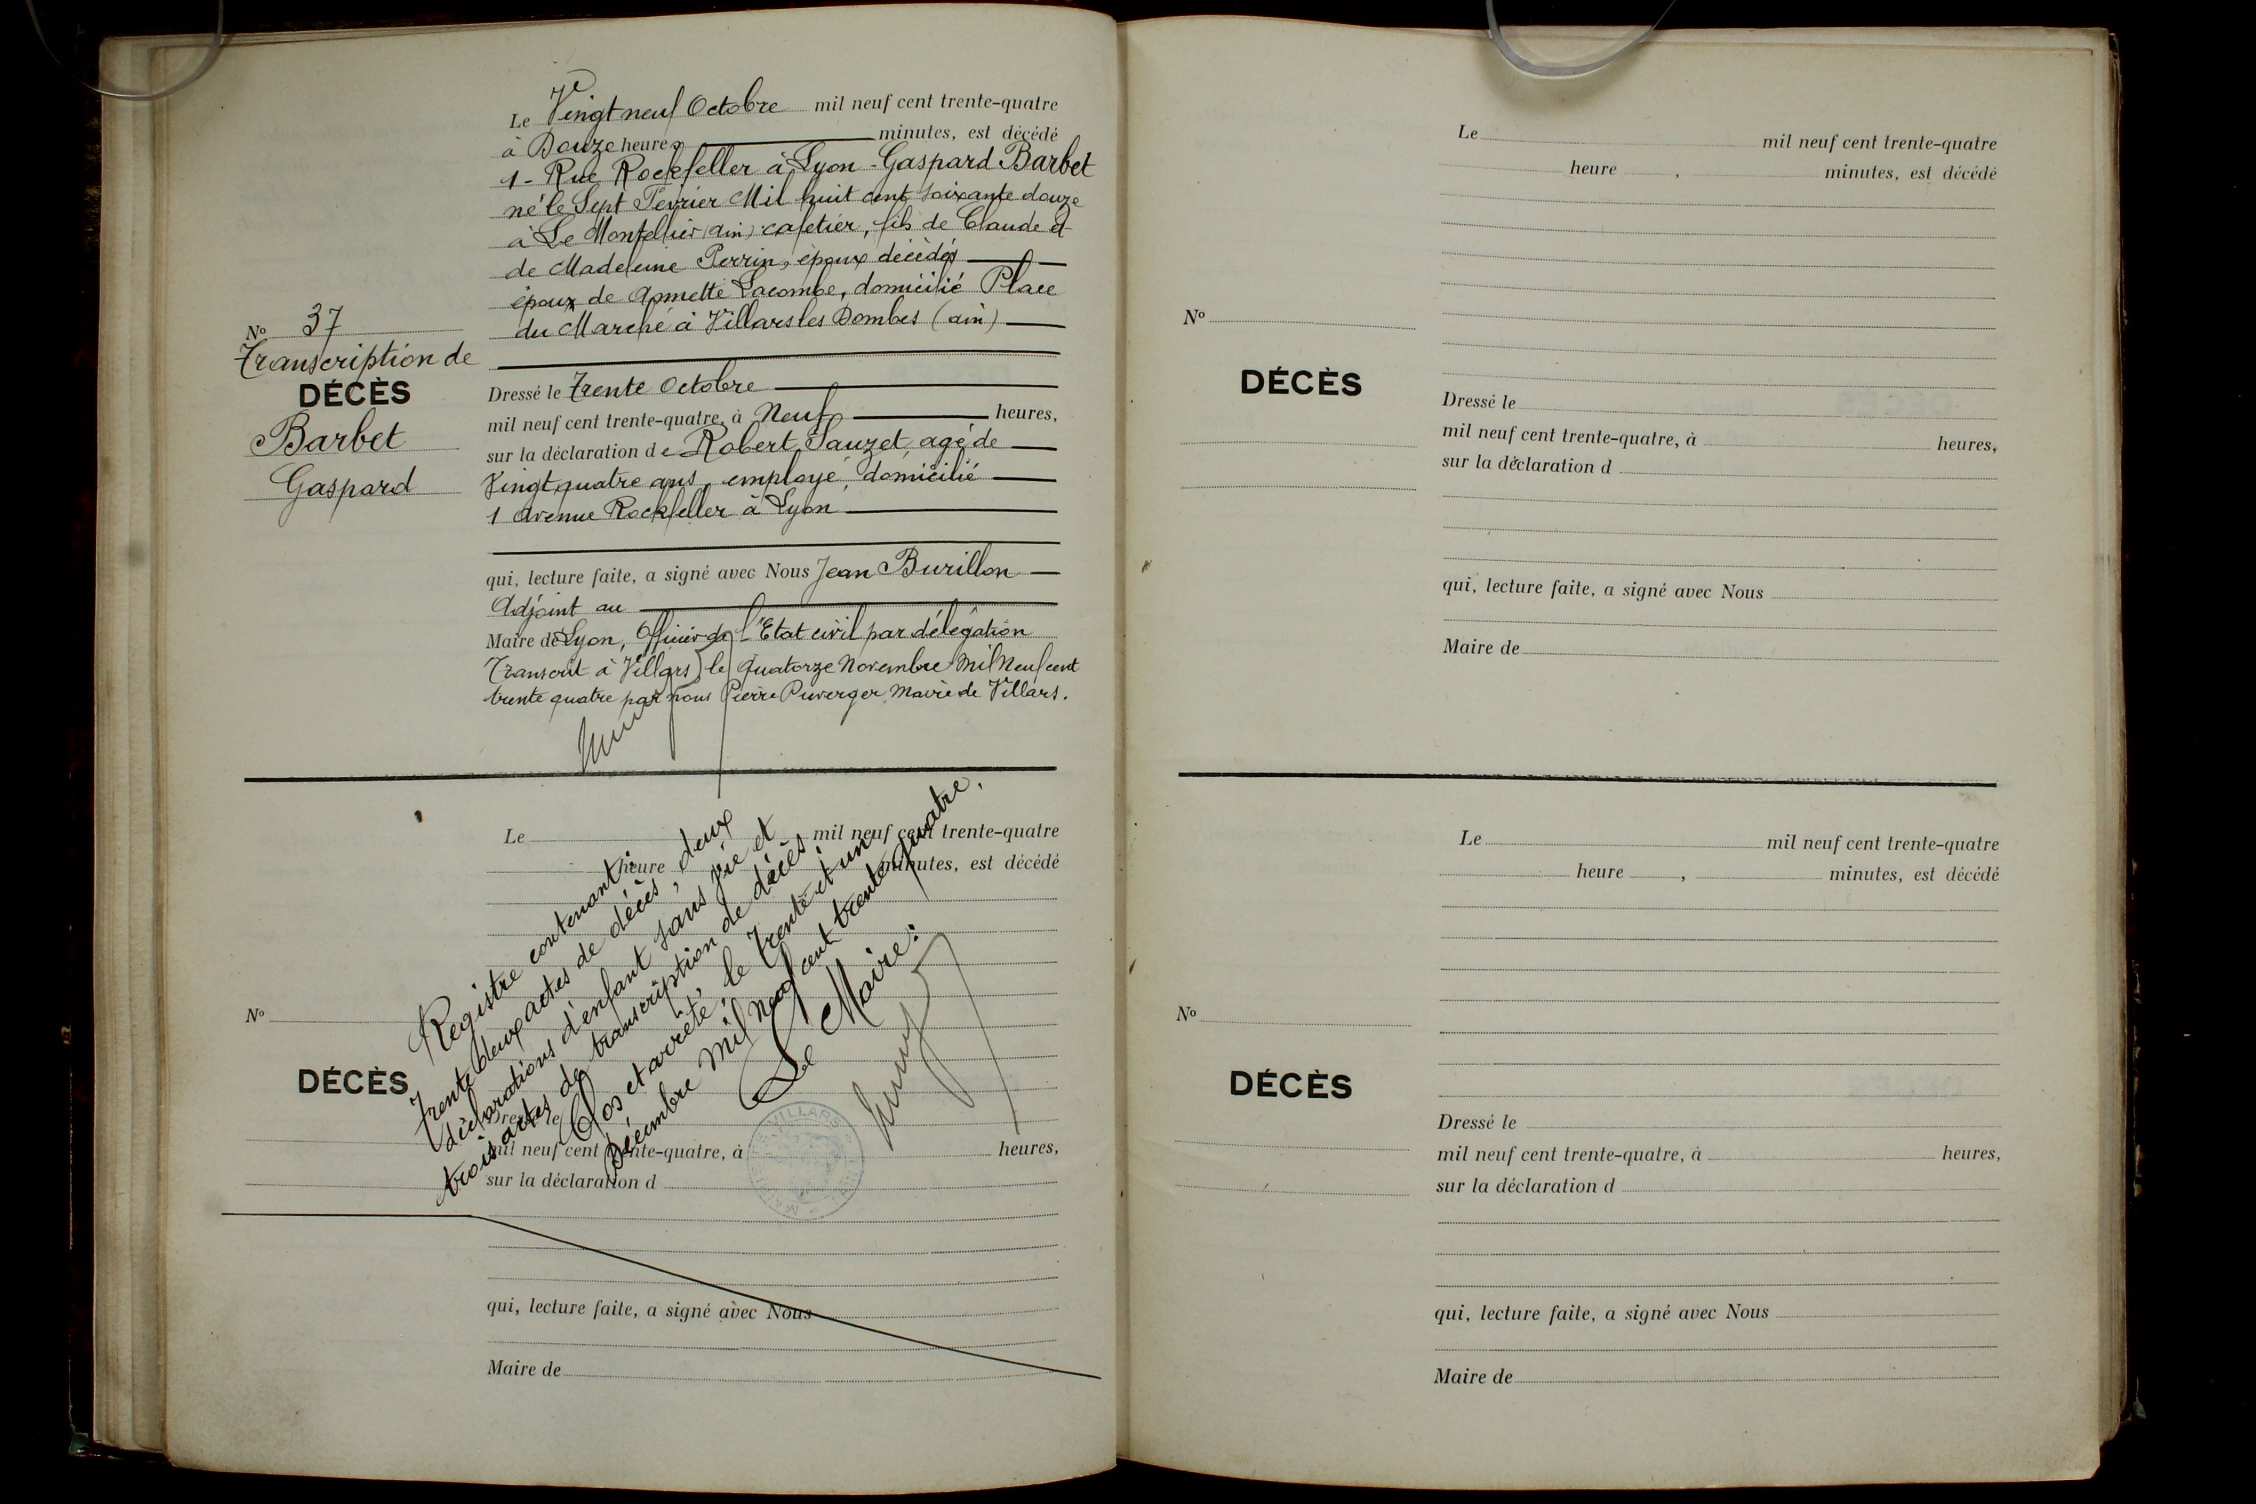 Le Vingt neuf Octobre mil neuf cent trente-quatre
à Douze heures minutes, est décédé
1 - Rue Rockfeller à Lyon - Gaspard Barbet
né le Sept Février Mil huit cent soixante douze
à Le Montellier (ain) cafetier, fils de Claude et
de Madeleine Perrin, époux décédés
époux de Annette Lacombe, domicilié Place
du Marché à Villars les Dombes (ain)
No 37
Transcription de
DÉCÈS
Barbet
Gaspard
Dressé le Trente Octobre
mil neuf cent trente-quatre, à Neuf heures,
sur la déclaration de Robert Sauzet, agé de
Vingt quatre ans, employé, domicilié
1 avenue Rockfeller à Lyon
qui, lecture faite, a signé avec Nous Jean Burillon
Adjoint au
Maire de Lyon, Officier de l'Etat civil par délégation
Transcrit à Villars, le quatorze Novembre Mil Neuf cent
trente quatre par nous Pierre Puverger Maire de Villars.
Le mil neuf cent trente-quatre
heure minutes, est décédé
No
DÉCÈS
Registre contenant :
Trente deux actes de décès, deux
déclarations d'enfant sans vie et
trois actes de transcription de décès.
Clos et arrêté, le Trente et un
Décembre Mil Neuf cent trente quatre.
Le Maire :
Dressé le
mil neuf cent trente-quatre, à heures,
sur la déclaration d
VILLARS
qui, lecture faite, a signé avec Nous
Maire de
Le mil neuf cent trente-quatre
heure , minutes, est décédé
No
DÉCÈS
Dressé le
mil neuf cent trente-quatre, à heures,
sur la déclaration d
qui, lecture faite, a signé avec Nous
Maire de
Le mil neuf cent trente-quatre
heure , minutes, est décédé
No
DÉCÈS
Dressé le
mil neuf cent trente-quatre, à heures,
sur la déclaration d
qui, lecture faite, a signé avec Nous
Maire de